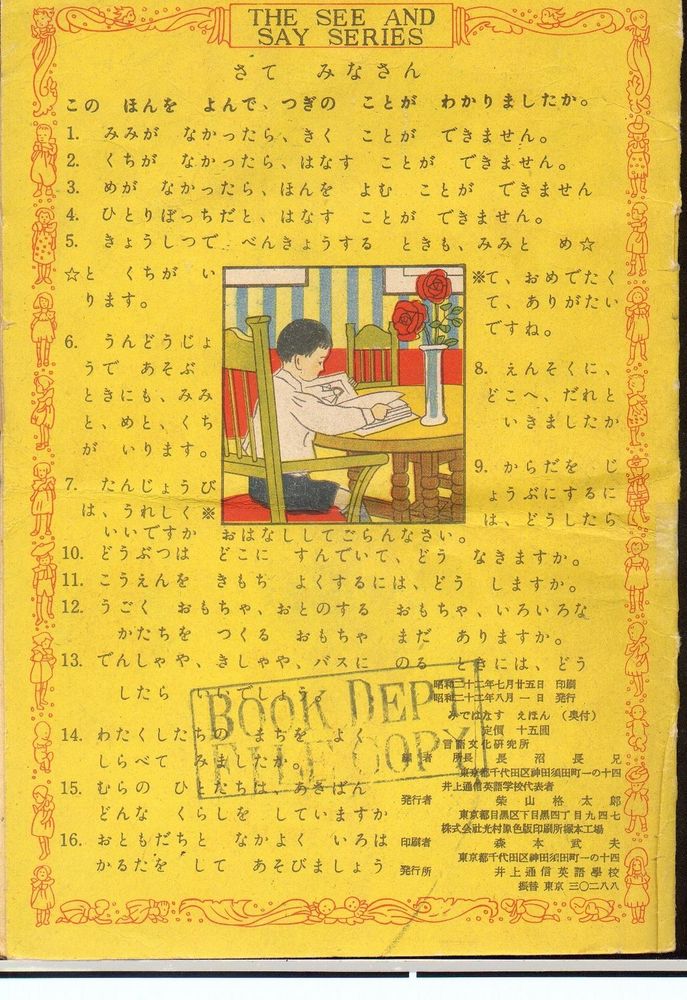 THE SEE AND
SAY SERIES
さて みなさん
この ほんを よんで、つぎの ことが わかりましたか。
1. みみが なかったら、きく ことが できません。
2. くちが なかったら、はなす ことが できません。
3. めが なかったら、ほんを よむ ことが できません
4. ひとりぼっちだと、はなす ことが できません。
5. きょうしつで べんきょうする ときも、みみと め☆
☆と くちが い
ります。
6. うんどうじょ
うで あそぶ
ときにも、みみ
と、めと、くち
が いります。
7. たんじょうび
は、うれしく※
いいですか
※て、おめでたく
て、ありがたい
ですね。
8. えんそくに、
どこへ、だれと
いきましたか
9. からだを じ
ょうぶにするに
は、どうしたら
おはなししてごらんなさい。
10. どうぶつは どこに すんでいて、どう なきますか。
11. こうえんを きもち よくするには、どう しますか。
12. うごく おもちゃ、おとのする おもちゃ、いろいろな
かたちを つくる おもちゃ まだ ありますか。
13. でんしゃや、きしゃや、バスに のる ときには、どう
したら いいでしょう。
14. わたくしたちの まちを よく
しらべて みましたか。
15. むらの ひとたちは、あさばん
どんな くらしを していますか
16. おともだちと なかよく いろは
かるたを して あそびましょう
BOOK DEPT
FILE COPY
昭和二十二年七月廿五日 印刷
昭和二十二年八月一日 発行
みてはなす えほん (奥付)
定價 十五圓
言語文化研究所
編者 所長 長沼長兄
東京都千代田区神田須田町一の十四
井上通信英語学校代表者
発行者 柴山格太郎
東京都目黒区下目黒四丁目九四七
株式会社光村原色版印刷所塚本工場
印刷者 森本武夫
東京都千代田区神田須田町一の十四
発行所 井上通信英語學校
振替 東京 三〇二八八